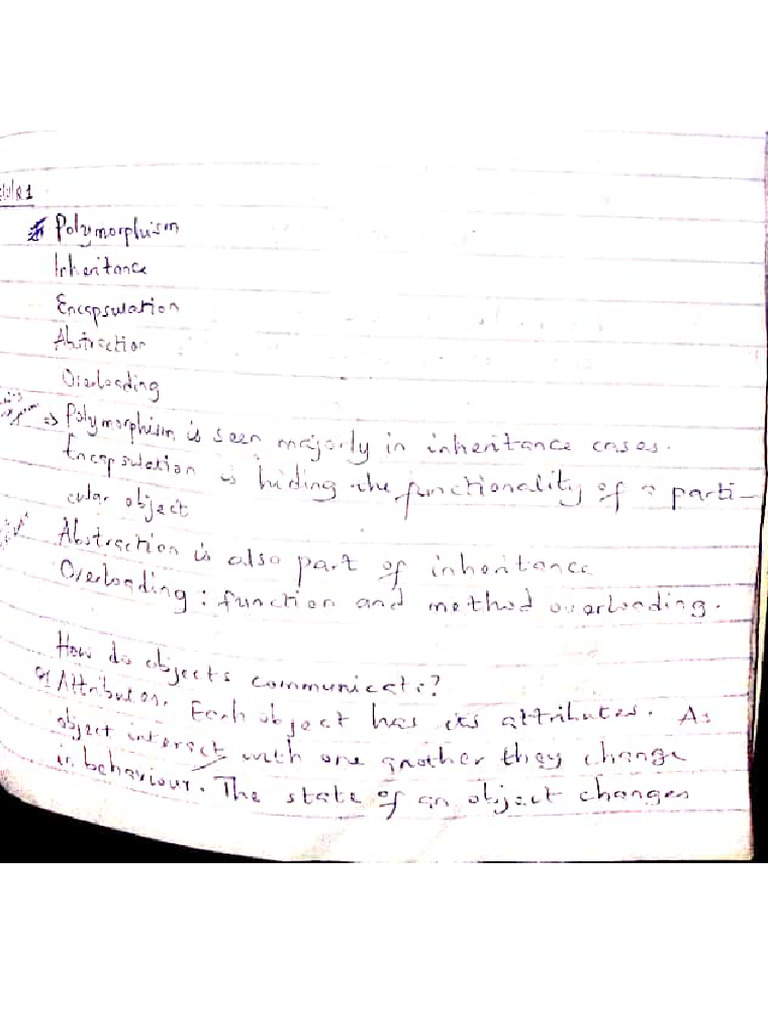 Polymorphism
Inheritance
Encapsulation
Abstraction
Overloading
=> Polymorphism is seen majorly in inheritance cases.
Encapsulation is hiding the functionality of a parti-
cular object
Abstraction is also part of inheritance
Overloading : function and method overloading.
How do objects communicate?
Attributes. Each object has its attributes. As
object interact with one another they change
in behaviour. The state of an object changes